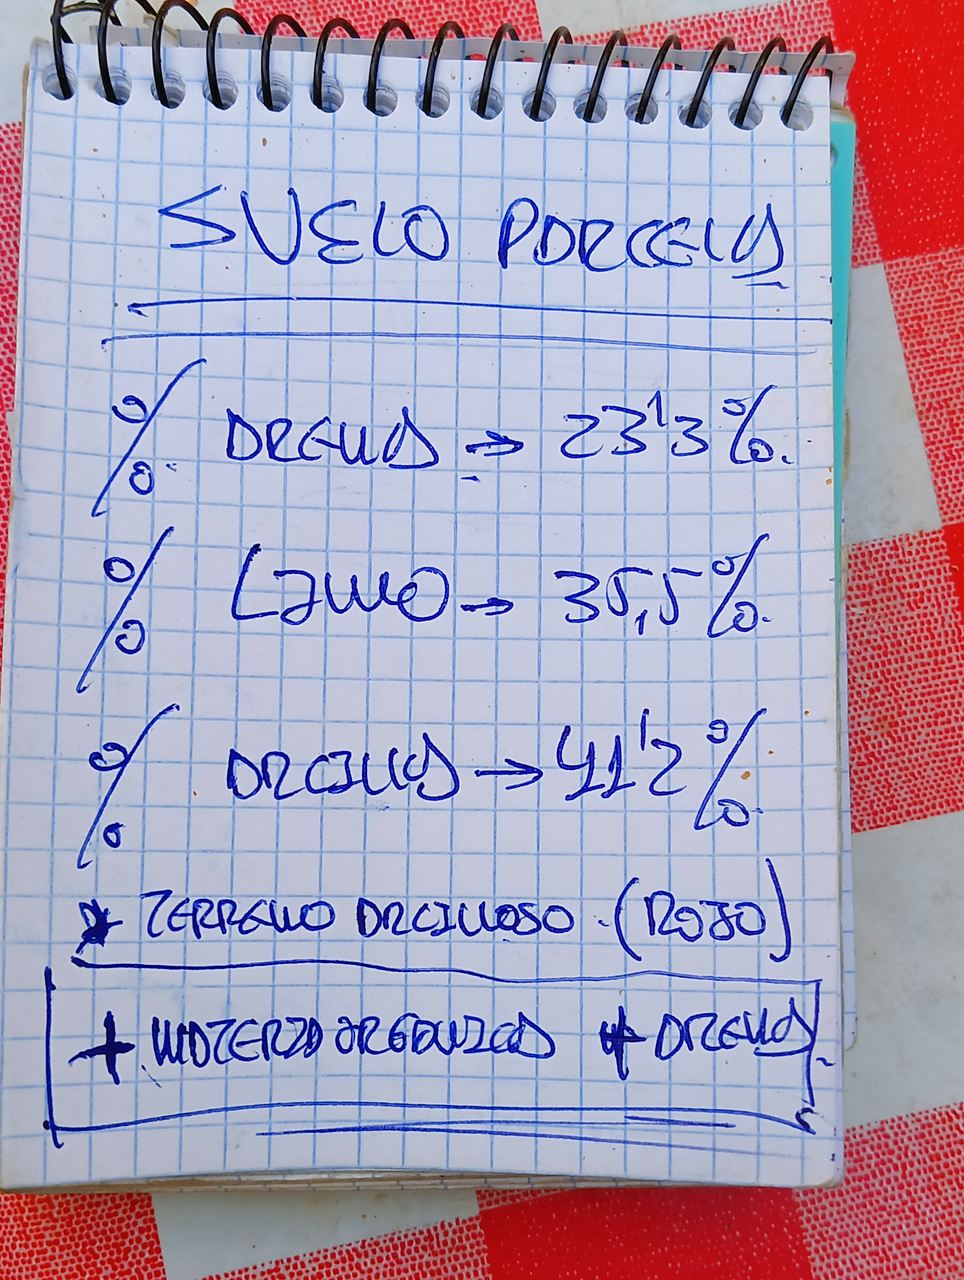 SUELO PARCELA
% ARENA → 23'3%.
% LIMO → 35,5%.
% ARCILLA → 41'2%.
* TERRENO ARCILLOSO. (ROJO)
+ MATERIA ORGANICA + ARENA.